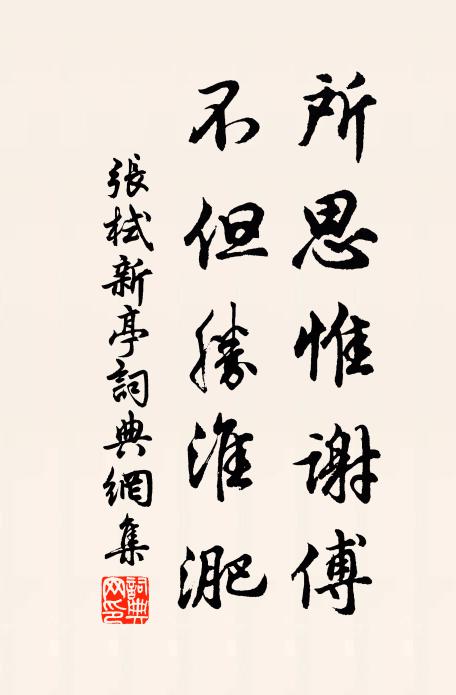 所思惟謝傅
不但勝淮淝
張栻新亭詞典網集
詞典网印